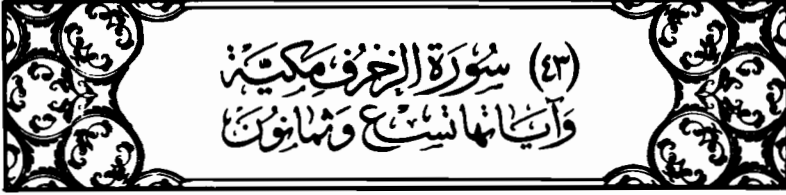 (٤٣) سُورَة الزخرُف مَكيَّة
وَآيَاتها تسِع وَثمانونَ